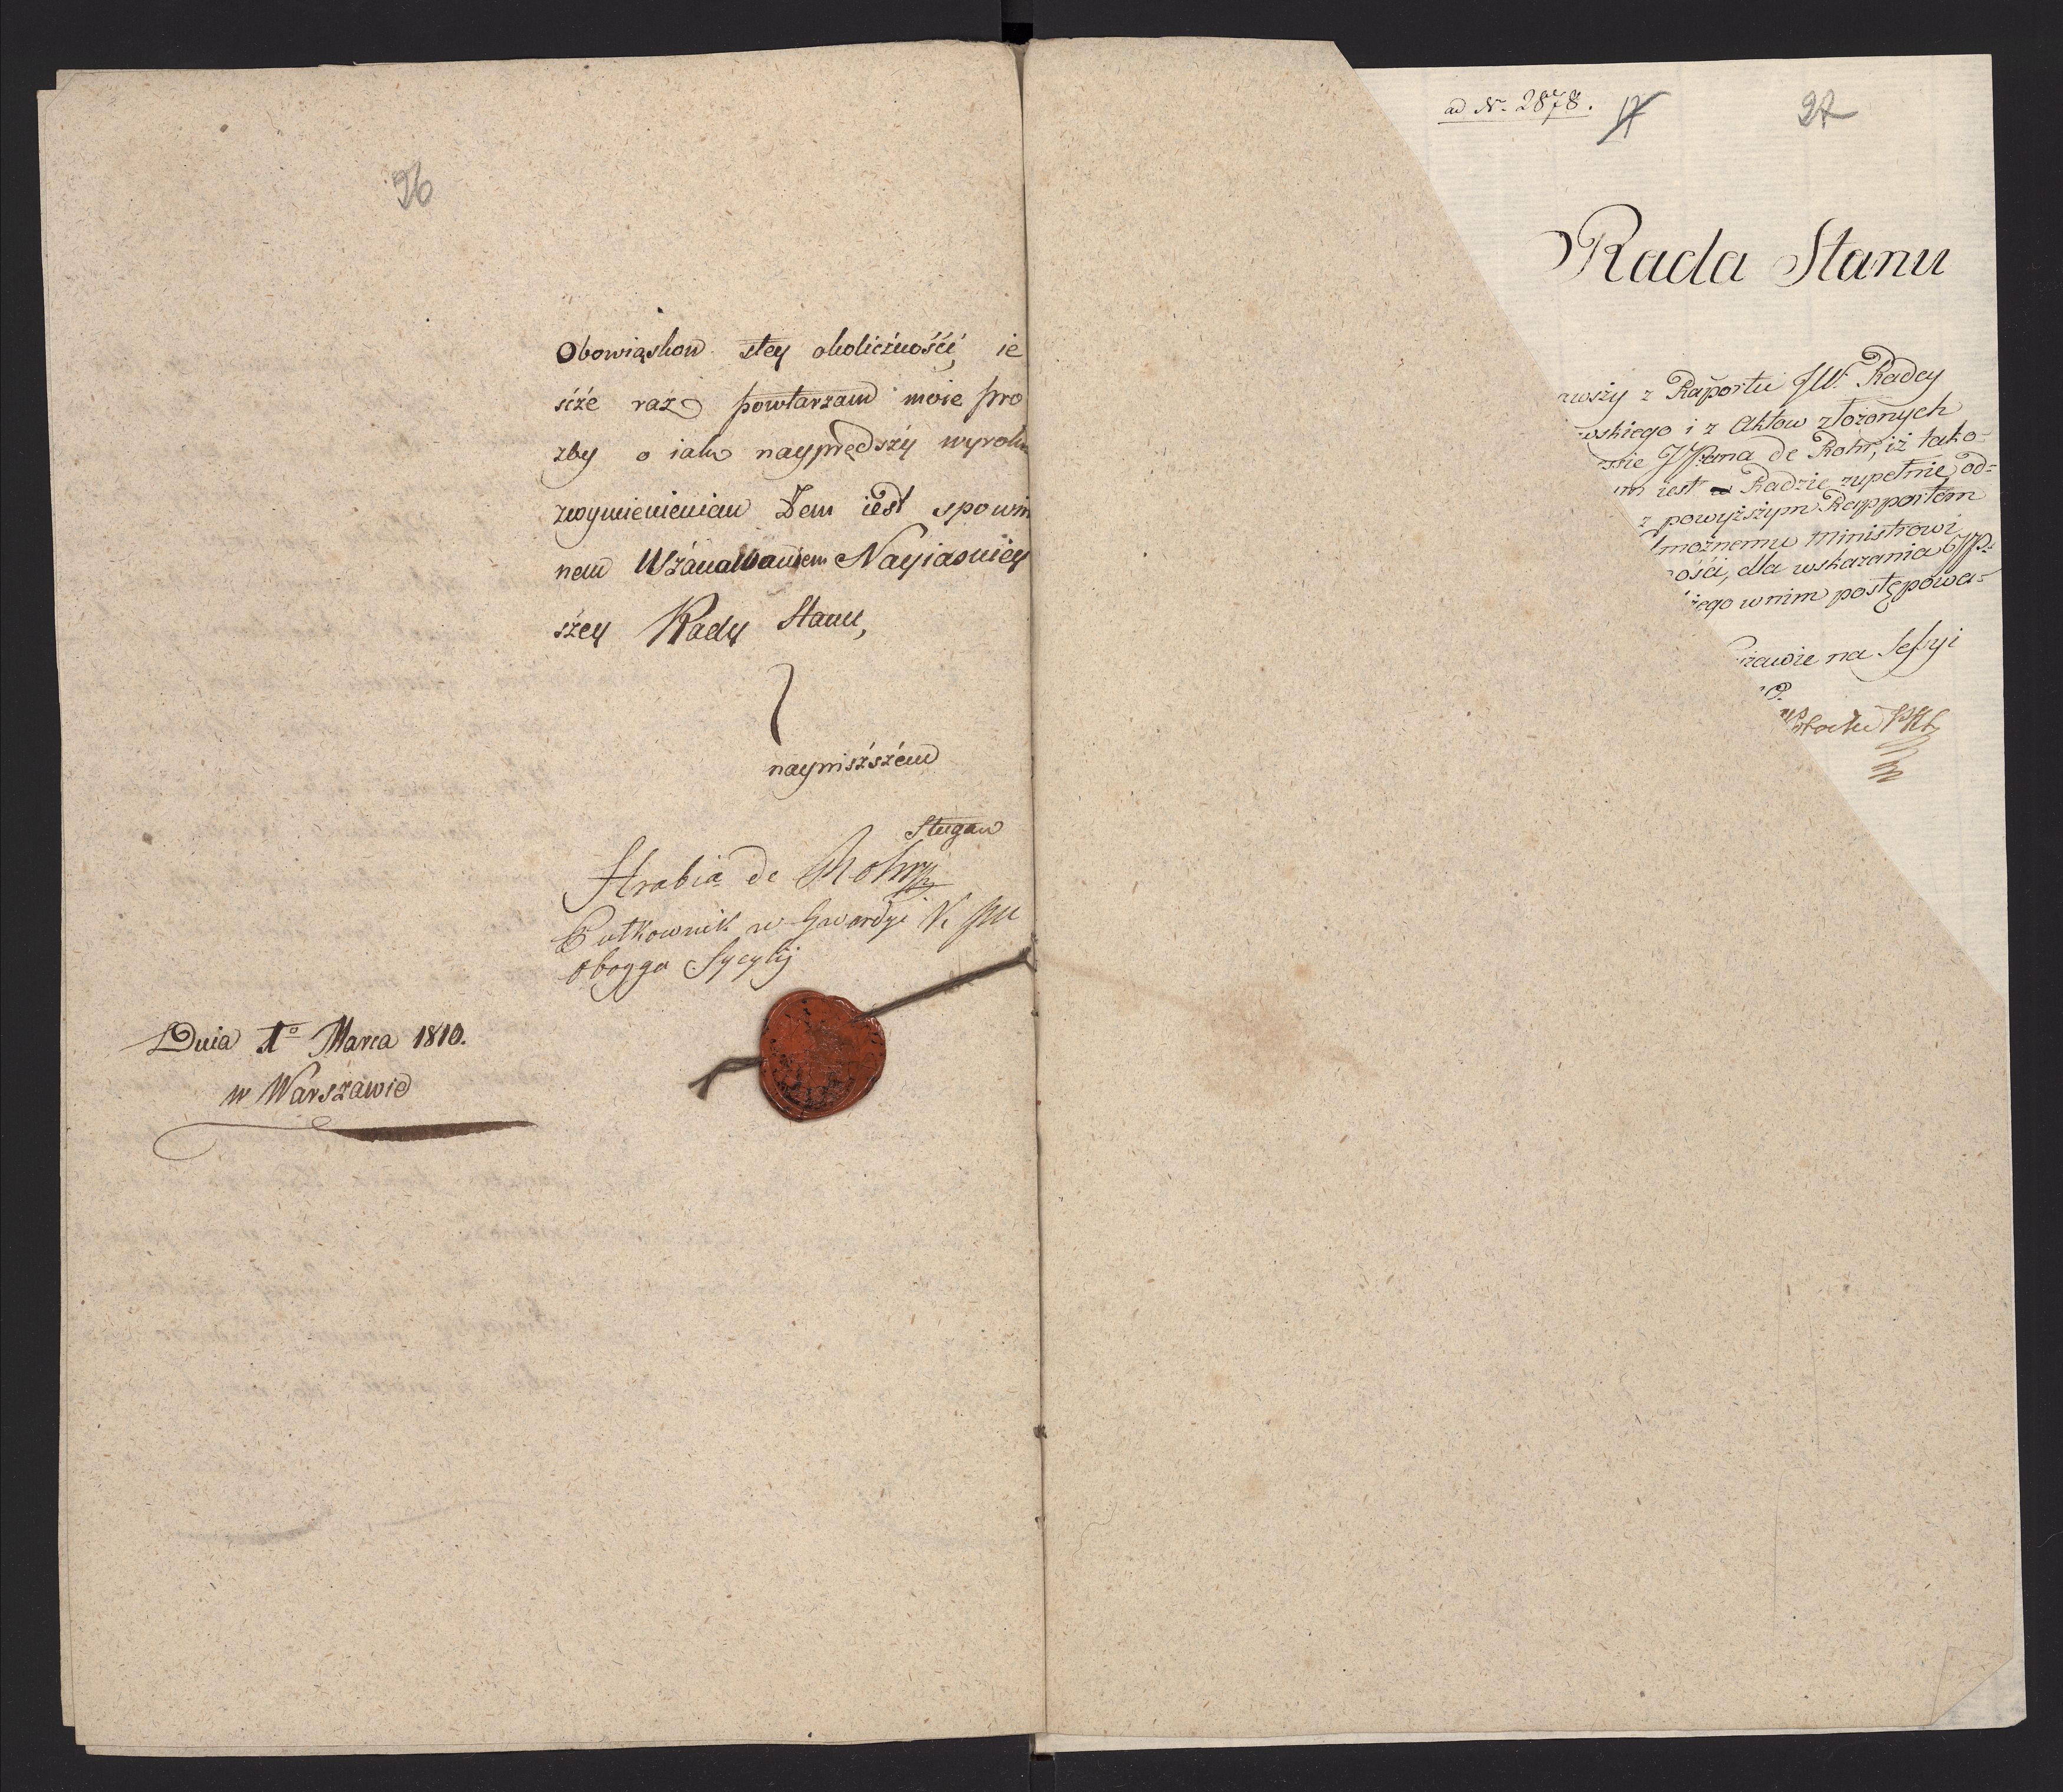 96
Obowiąskow stey okoliczności, ie
szże raz powtarzam moie pro
zby o iak nayprędszy wyrok
zwymienieniem Iem iest spowin
nem Uszanowaniem Nayiasniey
szey Rady Stanu,
nayniższem
Sługaw
Hrabia de Rohr
Pułkownik w Gwardyi K
oboyga Sycylij
Dnia 1o Marca 1810.
w Warszawie
ad Nr. 2878.
17
97
Rada Stanu
wszy z Raportu JW. Radcy
wskiego i z Aktow złożonych
JPana de Rohr, iż tako-
m iest w Radzie zupełnie od=
z powyższym Rapportem
możnemu Ministrowi
ości, dla wskazania JP.
żego w nim postępowa-
szawie na Sessyi